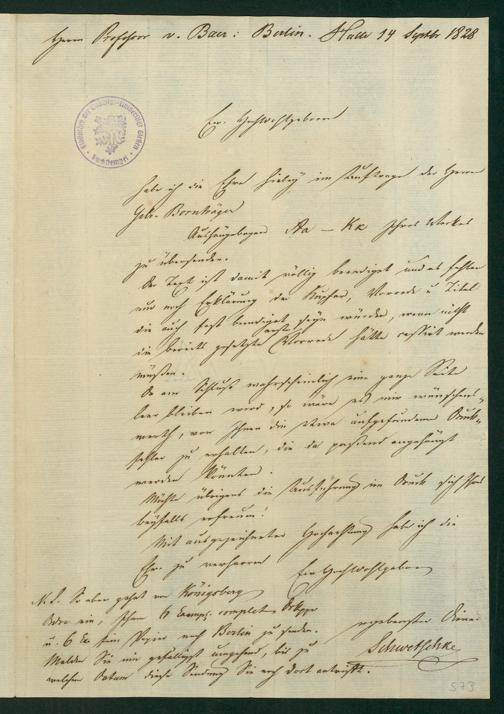 Herrn Professor v. Baer: Berlin. Halle 14 Septbr 1828
Ew. Hochwohlgeboren
habe ich die Ehre hiebey im Auftrage der Herren
Gebr. Bornträger
Aushängebogen Aa — Kk Ihres Werkes
zu übersenden.
Der Text ist damit völlig beendiget und es fehlen
nur noch Erklärung der Kupfer, Vorrede u Titel
die auch fast beendiget seyn würden, wenn nicht
die bereits gesetzte erste Vorrede hätte cassirt werden
müssen.
Da am Schluß wahrscheinlich eine ganze Seite
leer bleiben wird, so wäre es mir wünschens-
werth, von Ihnen die etwa aufgefundenen Druck-
fehler zu erhalten, die da passend angehängt
werden könnten.
Möchte übrigens die Ausführung im Druck sich Ihres
Beyfalls erfreun!
Mit ausgezeichneter Hochachtung habe ich die
Ehre zu verharren
Ew Hochwohlgeboren
ergebenster Diener
Schwetschke
N.S. So eben geht von Königsberg
Ordre ein, Ihnen 6 Exempl. complet
u. 6 Ex. fein Papier nach Berlin zu senden.
Melden Sie mir gefälligst umgehend, bis zu
welchem Datum diese Sendung Sie noch dort antrifft.
573